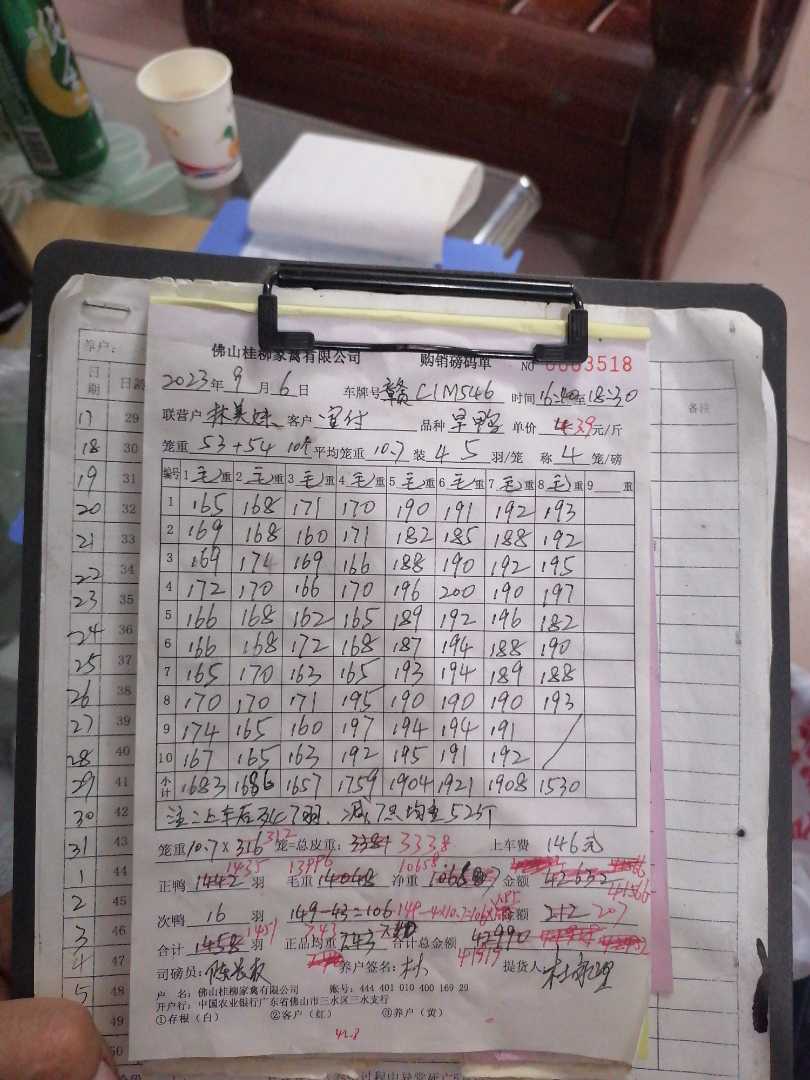 佛山桂柳家禽有限公司 购销磅码单 NO 0003518
2023年9月6日 车牌号 赣C1M546 时间16:40至18:30
联营户 林美妹 客户 宜付 品种 单价 4.39元/斤
笼重 53+54 10个 平均笼重 10.7 装 4 5 羽/笼 称 4 笼/磅
编号 1毛重 2毛重 3毛重 4毛重 5毛重 6毛重 7毛重 8毛重 9 重
1 165 168 171 170 190 191 192 193
2 169 168 160 171 182 185 188 192
3 169 174 169 166 188 190 192 195
4 172 170 166 170 196 200 190 197
5 166 168 162 165 189 192 196 182
6 166 168 172 168 187 194 188 190
7 165 170 163 165 193 194 189 188
8 170 170 171 195 190 190 190 193
9 174 165 160 197 194 194 191
10 167 165 163 192 195 191 192
小计 1683 1686 1657 1759 1904 1921 1908 1530
注:上车后死7羽、减7只均重 52斤
笼重10.7×316 312 笼=总皮重: 3381 3338 上车费 146元
正鸭 1442 1435 羽 毛重 14048 13996 净重 10658 金额 42632 41566
次鸭 16 羽 149-43=106 149-4×10.7=106 金额 212 207
合计 1458 1451 羽 正品均重 7.43 合计总金额 42990 41919
司磅员: 养户签名: 林 提货人:
户 名:佛山桂柳家禽有限公司 账号:444 401 010 400 169 29
开户行:中国农业银行广东省佛山市三水区三水支行
①存根(白) ②客户(红) ③养户(黄)
42.8
养户:
日期 日龄 备注
17 29
18 30
19 31
20 32
21 33
22 34
23 35
24 36
25 37
26 38
27 39
28 40
29 41
30 42
31 43
1 44
2 45
3 46
4 47
5 48
49
50